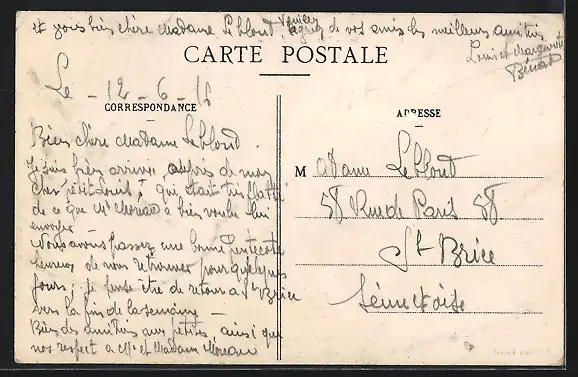 et vous bien chère Madame Leblond Veuillez agréez de vos amis les meilleurs amitiés
Louis et Marguerite
Bénard
CARTE POSTALE
Le - 12 - 6 - 16
CORRESPONDANCE
Bien chère Madame Leblond.
Je suis bien arrivée auprès de mon
cher petit Louis, qui était très flatté
de ce que Mr Moreau a bien voulu lui
envoyer —
Nous avons passez une bonne Pentecôte
heureux de nous retrouver pour quelques
jours, je pense être de retour a St Brice
vers la fin de la semaine —
Bien des amitiés aux petites ainsi que
nos respect a Mr et Madame Moreau
ADRESSE
M adame Leblond
58 Rue de Paris 58
St Brice
Seine et oise